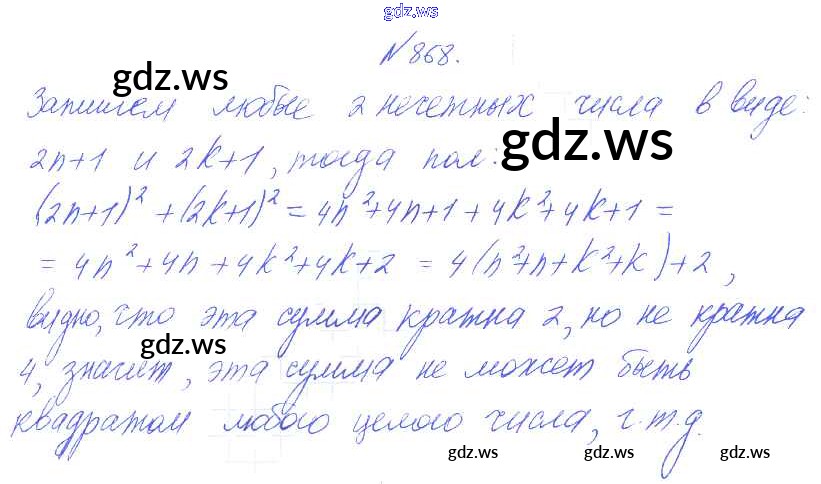 gdz.ws
№868.
gdz.ws
Запишем любые 2 нечетных числа в виде:
gdz.ws
2n+1 и 2k+1, тогда пол:
(2n+1)² + (2k+1)² = 4n²+4n+1+4k²+4k+1 =
= 4n²+4n+4k²+4k+2 = 4(n²+n+k²+k)+2,
видно, что эта сумма кратна 2, но не кратна
gdz.ws
4, значит, эта сумма не может быть
квадратом любого целого числа, ч.т.д.
gdz.ws gdz.ws gdz.ws